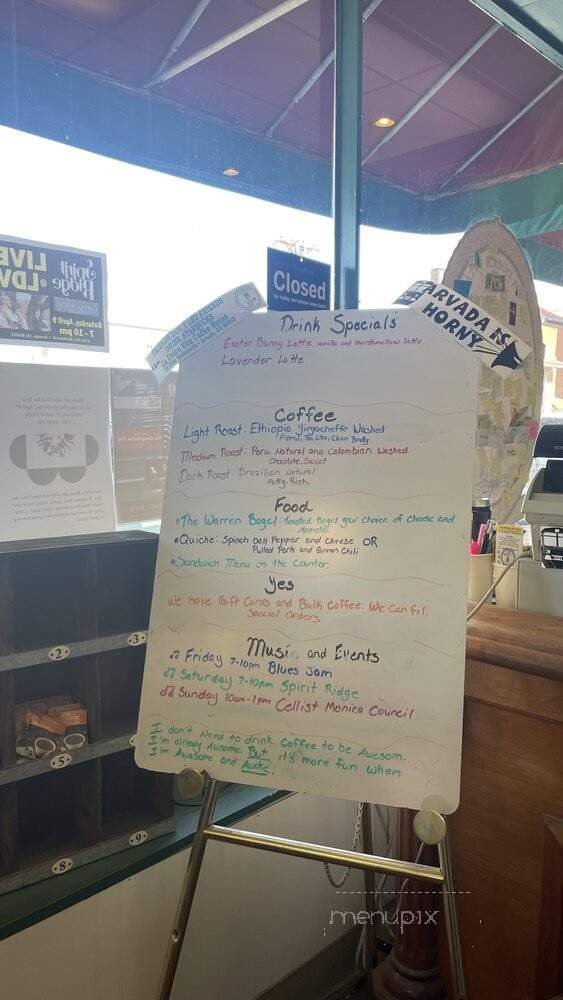 LIVE
@
LDV
Spirit
Ridge
Saturday, April 9
7-10 pm
Closed
for today, but please come back
ARVADA IS
HORNY
Drink Specials
Easter Bunny Latte vanilla and marshmallow latte
Lavender Latte
Coffee
Light Roast: Ethiopia Yirgocheffe Washed
Floral, Tea Like, Clean Body
Medium Roast: Peru Natural and Colombian Washed
Chocolate, Sweet
Dark Roast: Brazilian Natural
Nutty, Rich
Food
•The Warren Bagel: Toasted Bagel your choice of Cheese and
•Quiche: Spinch Bell Pepper and Cheese OR
Pulled Pork and Green Chili
•Sandwich Menu on the Counter
Yes
We have Gift Cards and Bulk Coffee. We Can fil
Special Orders
Musi and Events
♫ Friday 7-10pm Blues Jam
♫ Saturday 7-10pm Spirit Ridge
♫ Sunday 10am-1pm Cellist Monica Council
I don't Need to drink Coffee to be Awesom.
I'm already Awesome. But it's more fun when
I'm Awesome and Awake.
2
3
5
8
9
menupix